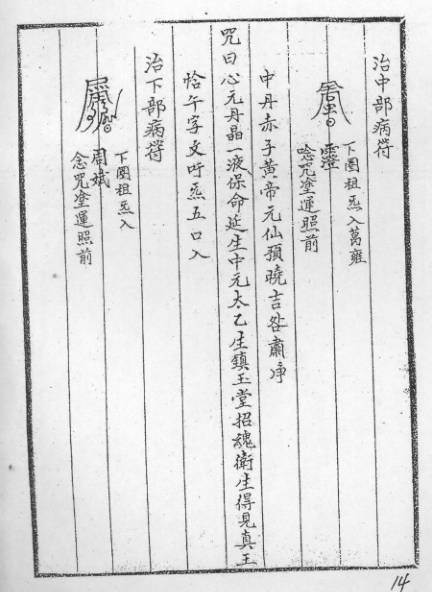 治中部病符
下圈祖炁入葛雍
靈
唸咒塗運照前
中丹赤子黃帝元仙預曉吉咎肅淨
咒曰心元丹晶一液保命延生中元太乙生鎮玉堂招魂衛生得見真王
恰午字文吁炁五口入
治下部病符
下圈祖炁入
周斌
念咒塗運照前
14